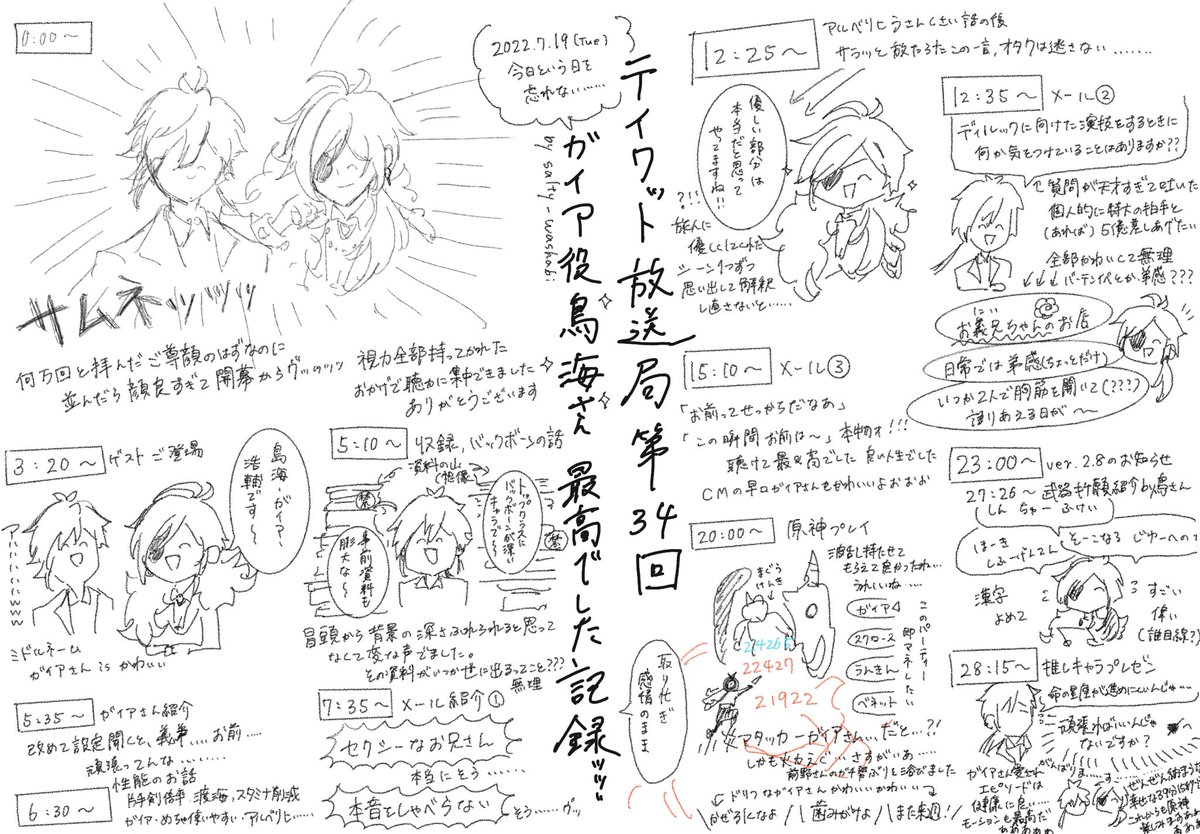 2022.7.19(Tue)
今日という日を
忘れない……
テイワット放送局第34回
ガイア役鳥海さん 最高でした記録ッッ
by salty-washabi
0:00〜
サムネッッッッ
何万回と拝んだご尊顔のはずなのに
並んだら顔良すぎて開幕からヴッのッッ
視力全部持ってかれた
おかげで聴力に集中できました
ありがとうございます
3:20〜 ゲストご登場
鳥海・ガイア・
浩輔です〜
アハハハハハwww
ミドルネーム
ガイアさん is かわいい
5:10〜 収録、バックボーンの話
資料の山
(想像)
トップクラスに
バックボーンが深い
キャラで〜
事前資料も
膨大な〜
禁
禁
冒頭から背景の深さふれられると思って
なくて変な声でました。
その資料がいつか世に出るってこと???
無理
5:35〜 ガイアさん紹介
改めて設定聞くと、義弟....お前....
頑張ってんな……
6:30〜 性能のお話
元素創傷率、渡海、スタミナ削減
ガイアめちゃ使いやすい アルベリヒ…
7:35〜 メール紹介①
セクシーなお兄さん
本当にそう……
本音をしゃべらない
そう……ヴッ
12:25〜
アルベリヒうさんくさい話の後
サラッと放たれたこの一言、オタクは逃さない……
優しい部分は
本当だと思って
やってますね!!
?!!
旅人に
優しくしてくれた
シーン1つずつ
思い出して解釈
し直さないと……
12:35〜 メール②
ディルックに向けた演技をするときに
何か気をつけていることはありますか??
質問が天才すぎて吐いた
個人的に特大の拍手と
(あれば)5億差しあげたい
全部かわいくて無理
↓↓↓バーテンバとか、弟感??
お義兄ちゃんのお店
にい
日常では弟感(ちょっとだけ)
いつか2人で胸筋を開いて(???)
語りあえる日が〜
15:10〜 メール③
「お前ってせっかちだなあ」
「この瞬間お前は〜」本物ォ!!!
聴けて最&高でした 良い人生でした
CMの早口ガイアさんもかわいいよおおお
20:00〜 原神プレイ
24265
22427
21922
ガイア
スクロース
うんきん
ベネット
このパーティー
即マネしたい
取り忙ぎ
感情のまま
アタッカーガイアさん…だと…?!
しかも火力えぐ…さすがぃぁ….
前野さんのガチ勢ぶりを浴びました
←ドリフなガイアさんかわいい かわいい
かぜひくなよ/ 歯みがけな/ また来週!/
23:00〜 ver.2.8のお知らせ
27:26〜 武器祈願紹介by鳥さん
しん ちゅー ふけい
ほーき
しふーげんてん
そーこなる じゆーへの
漢字
よめて
すごい
偉い
(誰目線?)
28:15〜 推しキャラプレゼン
命の星座が進めにくいんじゃ…
頑張ればいいんじゃ
ないですか?
がんばりま…す…
ガイアさん愛され
エピソードは
健康に良い…
モーションも最高だ